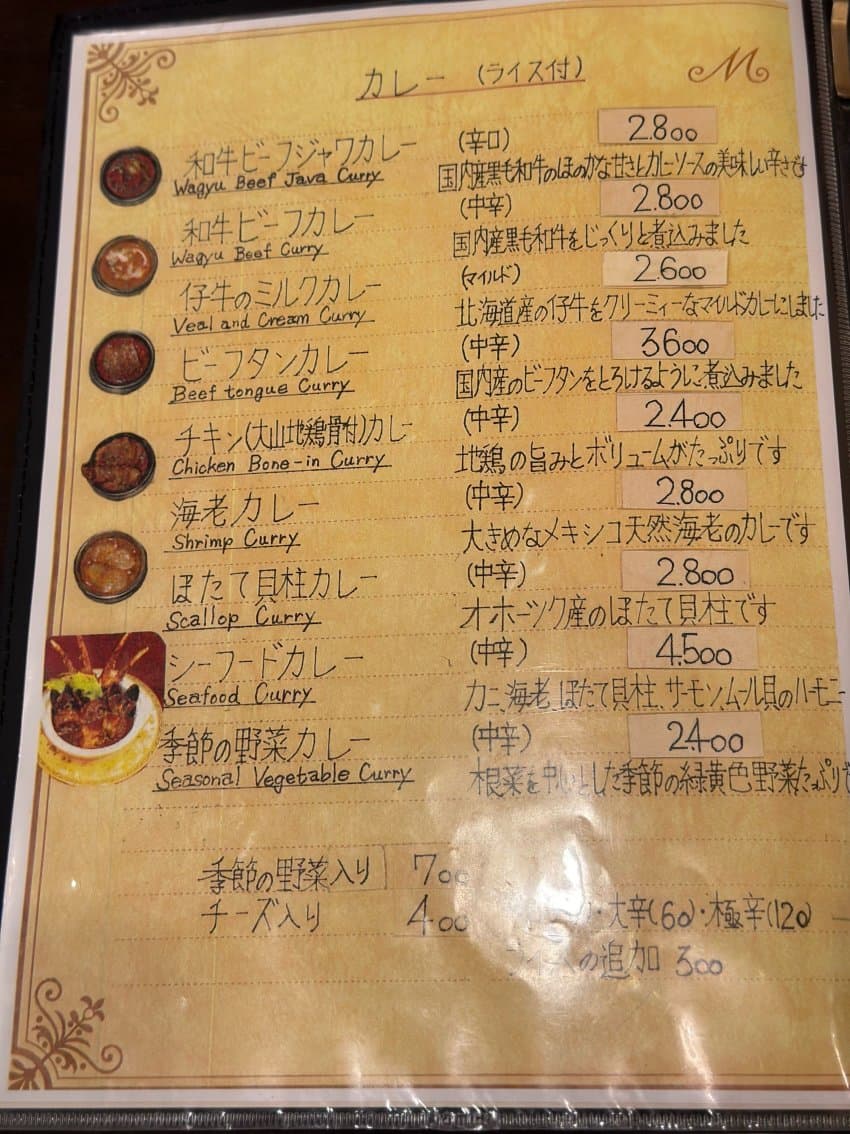 カレー (ライス付)
M
和牛ビーフジャワカレー (辛口) 2.800
Wagyu Beef Java Curry 国内産黒毛和牛のほのかな甘さとカレーソースの美味しい辛さです
和牛ビーフカレー (中辛) 2.800
Wagyu Beef Curry 国内産黒毛和牛をじっくりと煮込みました
仔牛のミルクカレー (マイルド) 2.600
Veal and Cream Curry 北海道産の仔牛をクリーミィーなマイルドカレーにしました
ビーフタンカレー (中辛) 3600
Beef tongue Curry 国内産のビーフタンをとろけるように煮込みました
チキン(大山地鶏骨付)カレー (中辛) 2.400
Chicken Bone-in Curry 地鶏の旨みとボリュームがたっぷりです
海老カレー (中辛) 2.800
Shrimp Curry 大きめなメキシコ天然海老のカレーです
ほたて貝柱カレー (中辛) 2.800
Scallop Curry オホーツク産のほたて貝柱です
シーフードカレー (中辛) 4.500
Seafood Curry カニ、海老、ほたて貝柱、サーモン、ムール貝のハーモニー
季節の野菜カレー (中辛) 2.400
Seasonal Vegetable Curry 根菜を中心とした季節の緑黄色野菜たっぷり
季節の野菜入り 700
チーズ入り 400 ・大辛(60)・極辛(120)
の追加 300